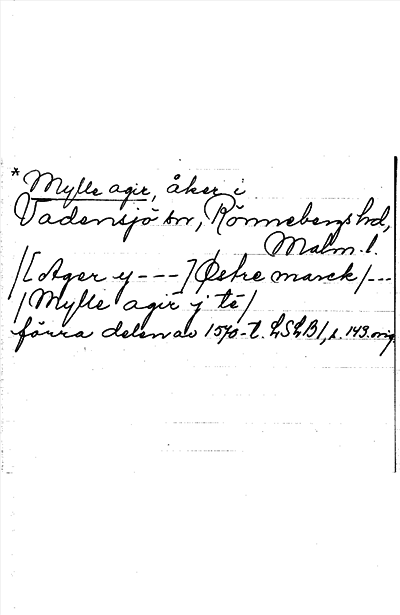 *Mylle agir, åker i
Vadensjö sn, Rönnebergs hd,
Malm. l.
/[Ager y ---] Østre marck/---
/Mylle agir j té/
förra delen av 1570-t. LSLB1, s. 143. orig.